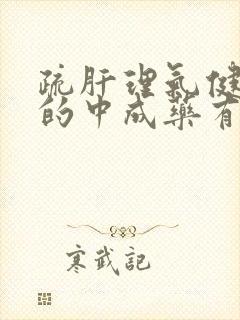 疏肝理氣健
的中成藥有
寒武記